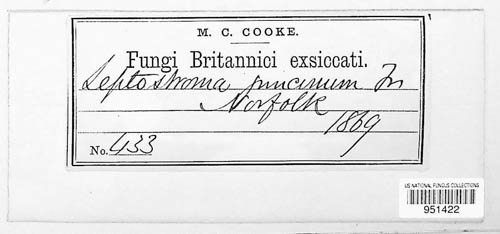 M. C. COOKE.
Fungi Britannici exsiccati.
Leptostroma juncinum Fr
Norfolk
1869
No. 433
US NATIONAL FUNGUS COLLECTIONS
951422